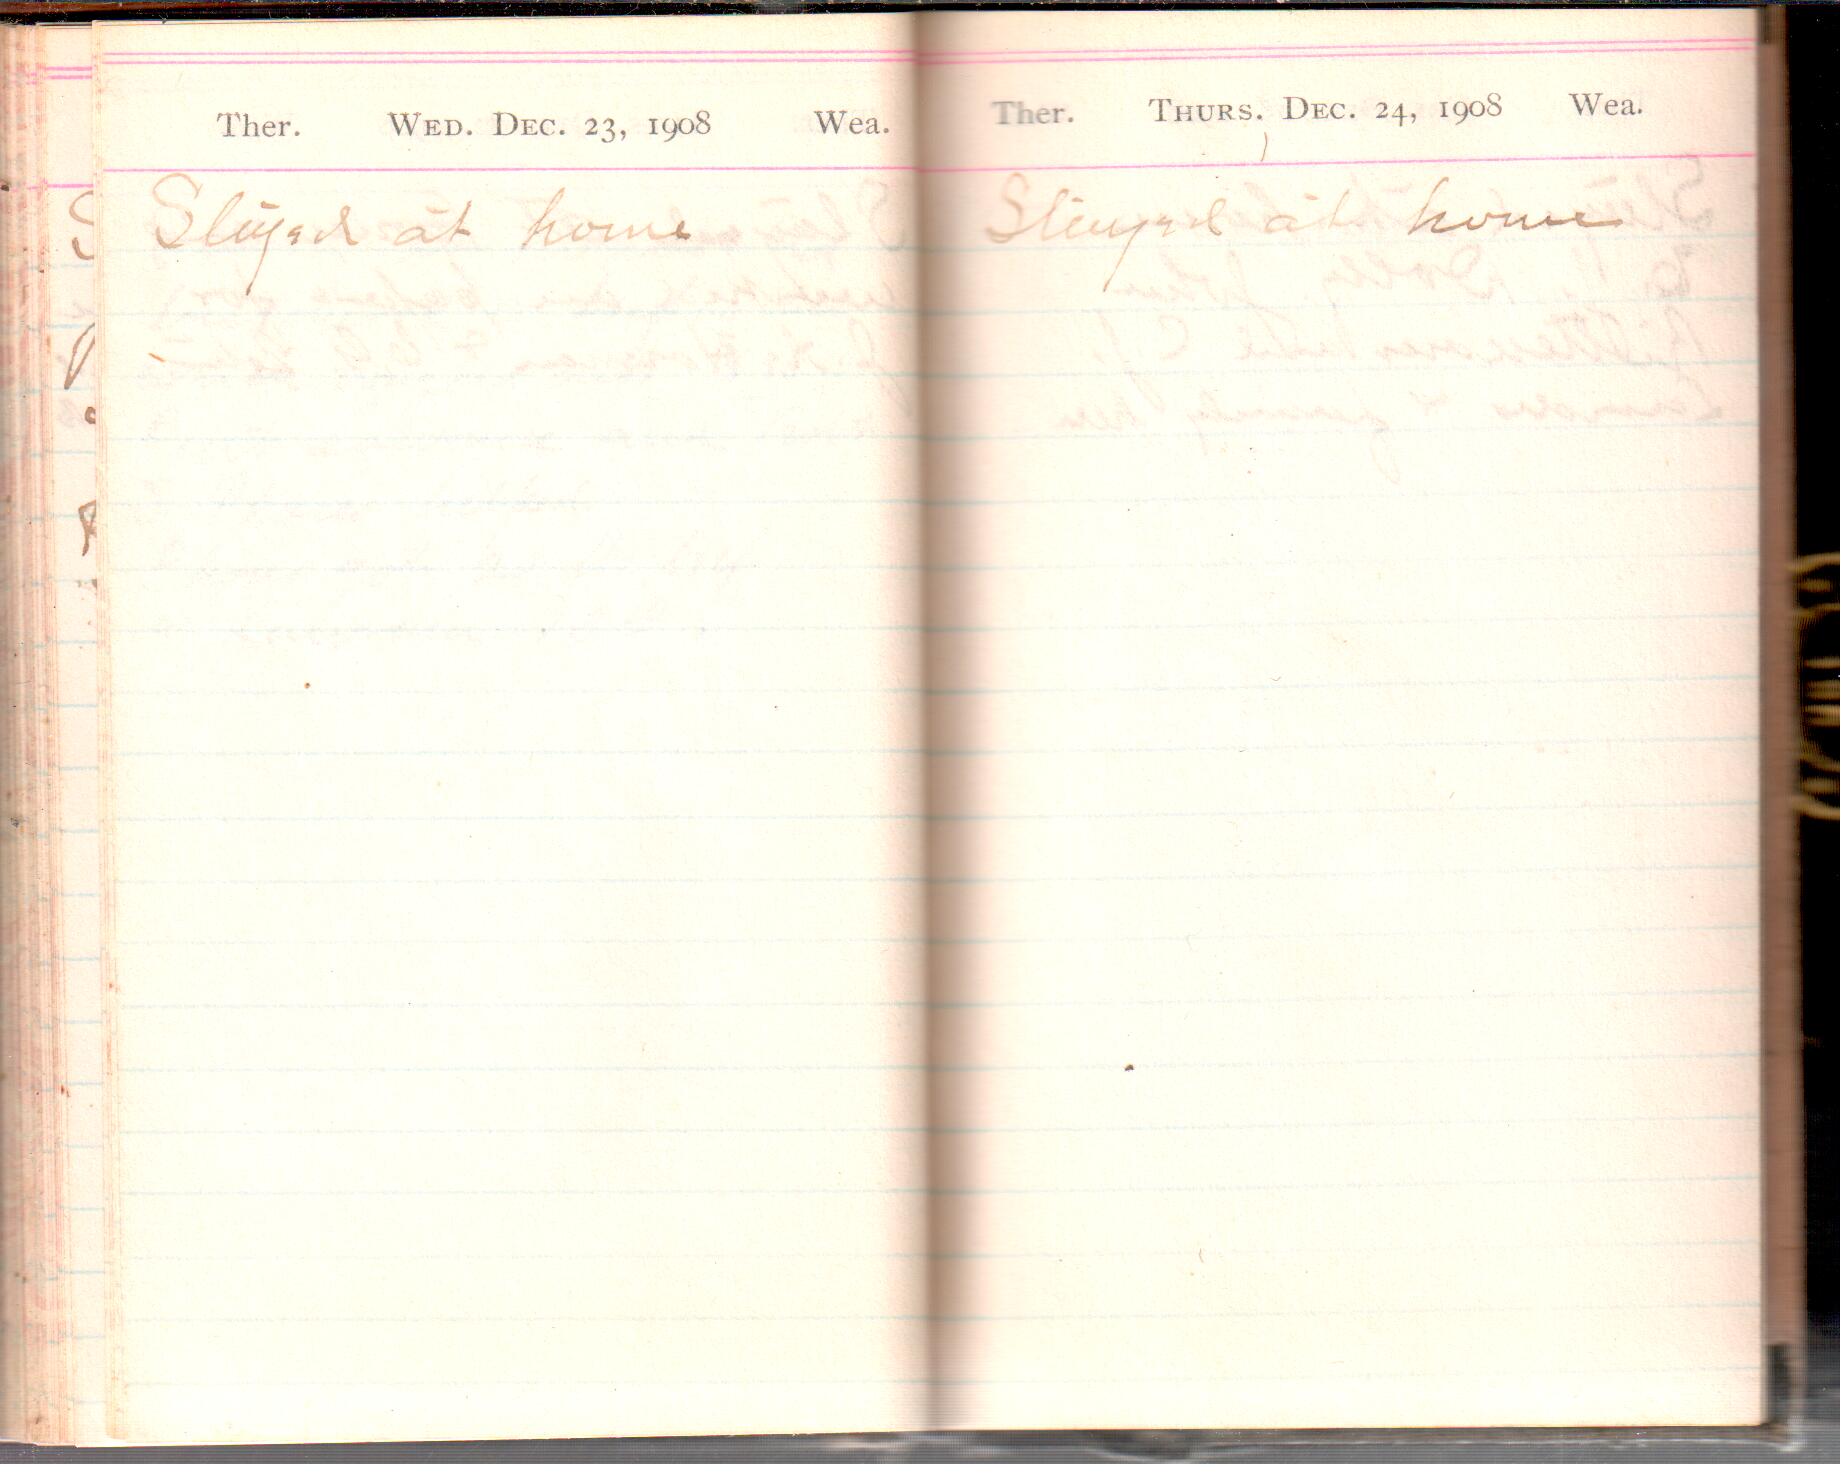 Ther. Wed. Dec. 23, 1908 Wea.
Stayed at home
Ther. Thurs. Dec. 24, 1908 Wea.
Stayed at home